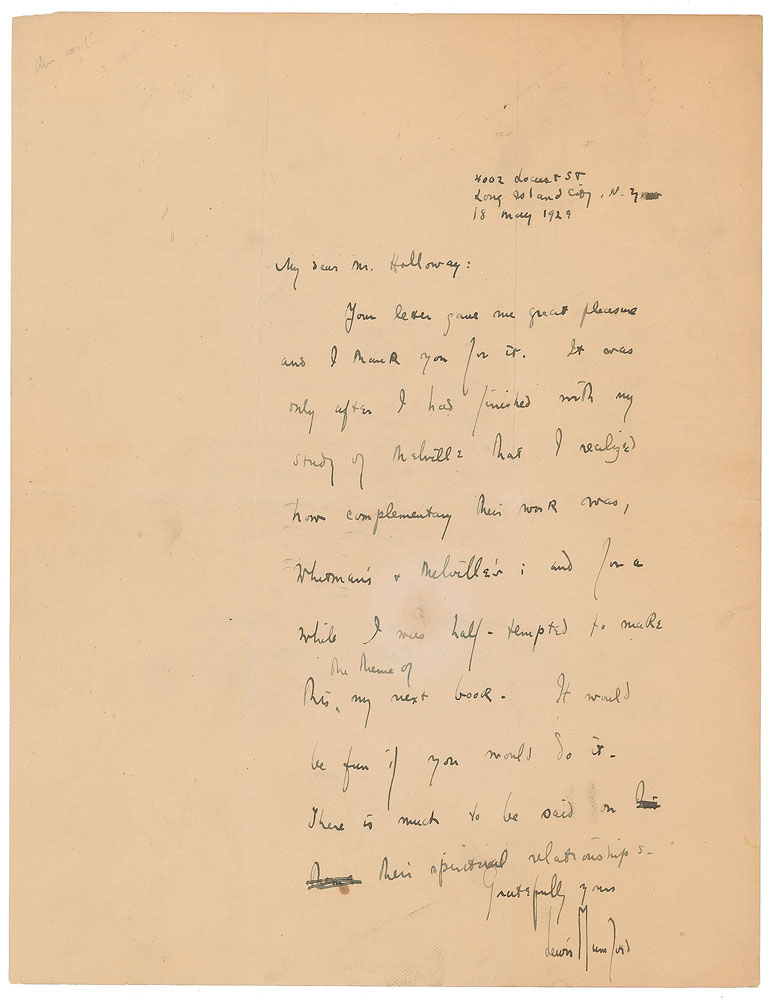 4002 Locust St
Long Island City, N.Y.
18 May 1929
My dear Mr. Holloway:
Your letter gave me great pleasure
and I thank you for it. It was
only after I had finished with my
study of Melville that I realized
how complementary their work was,
Whitman's & Melville's; and for a
while I was half-tempted to make
the theme of
this, my next book. It would
be fun if you would do it.
There is much to be said on
their spiritual relationships.
Gratefully yours
Lewis Mumford